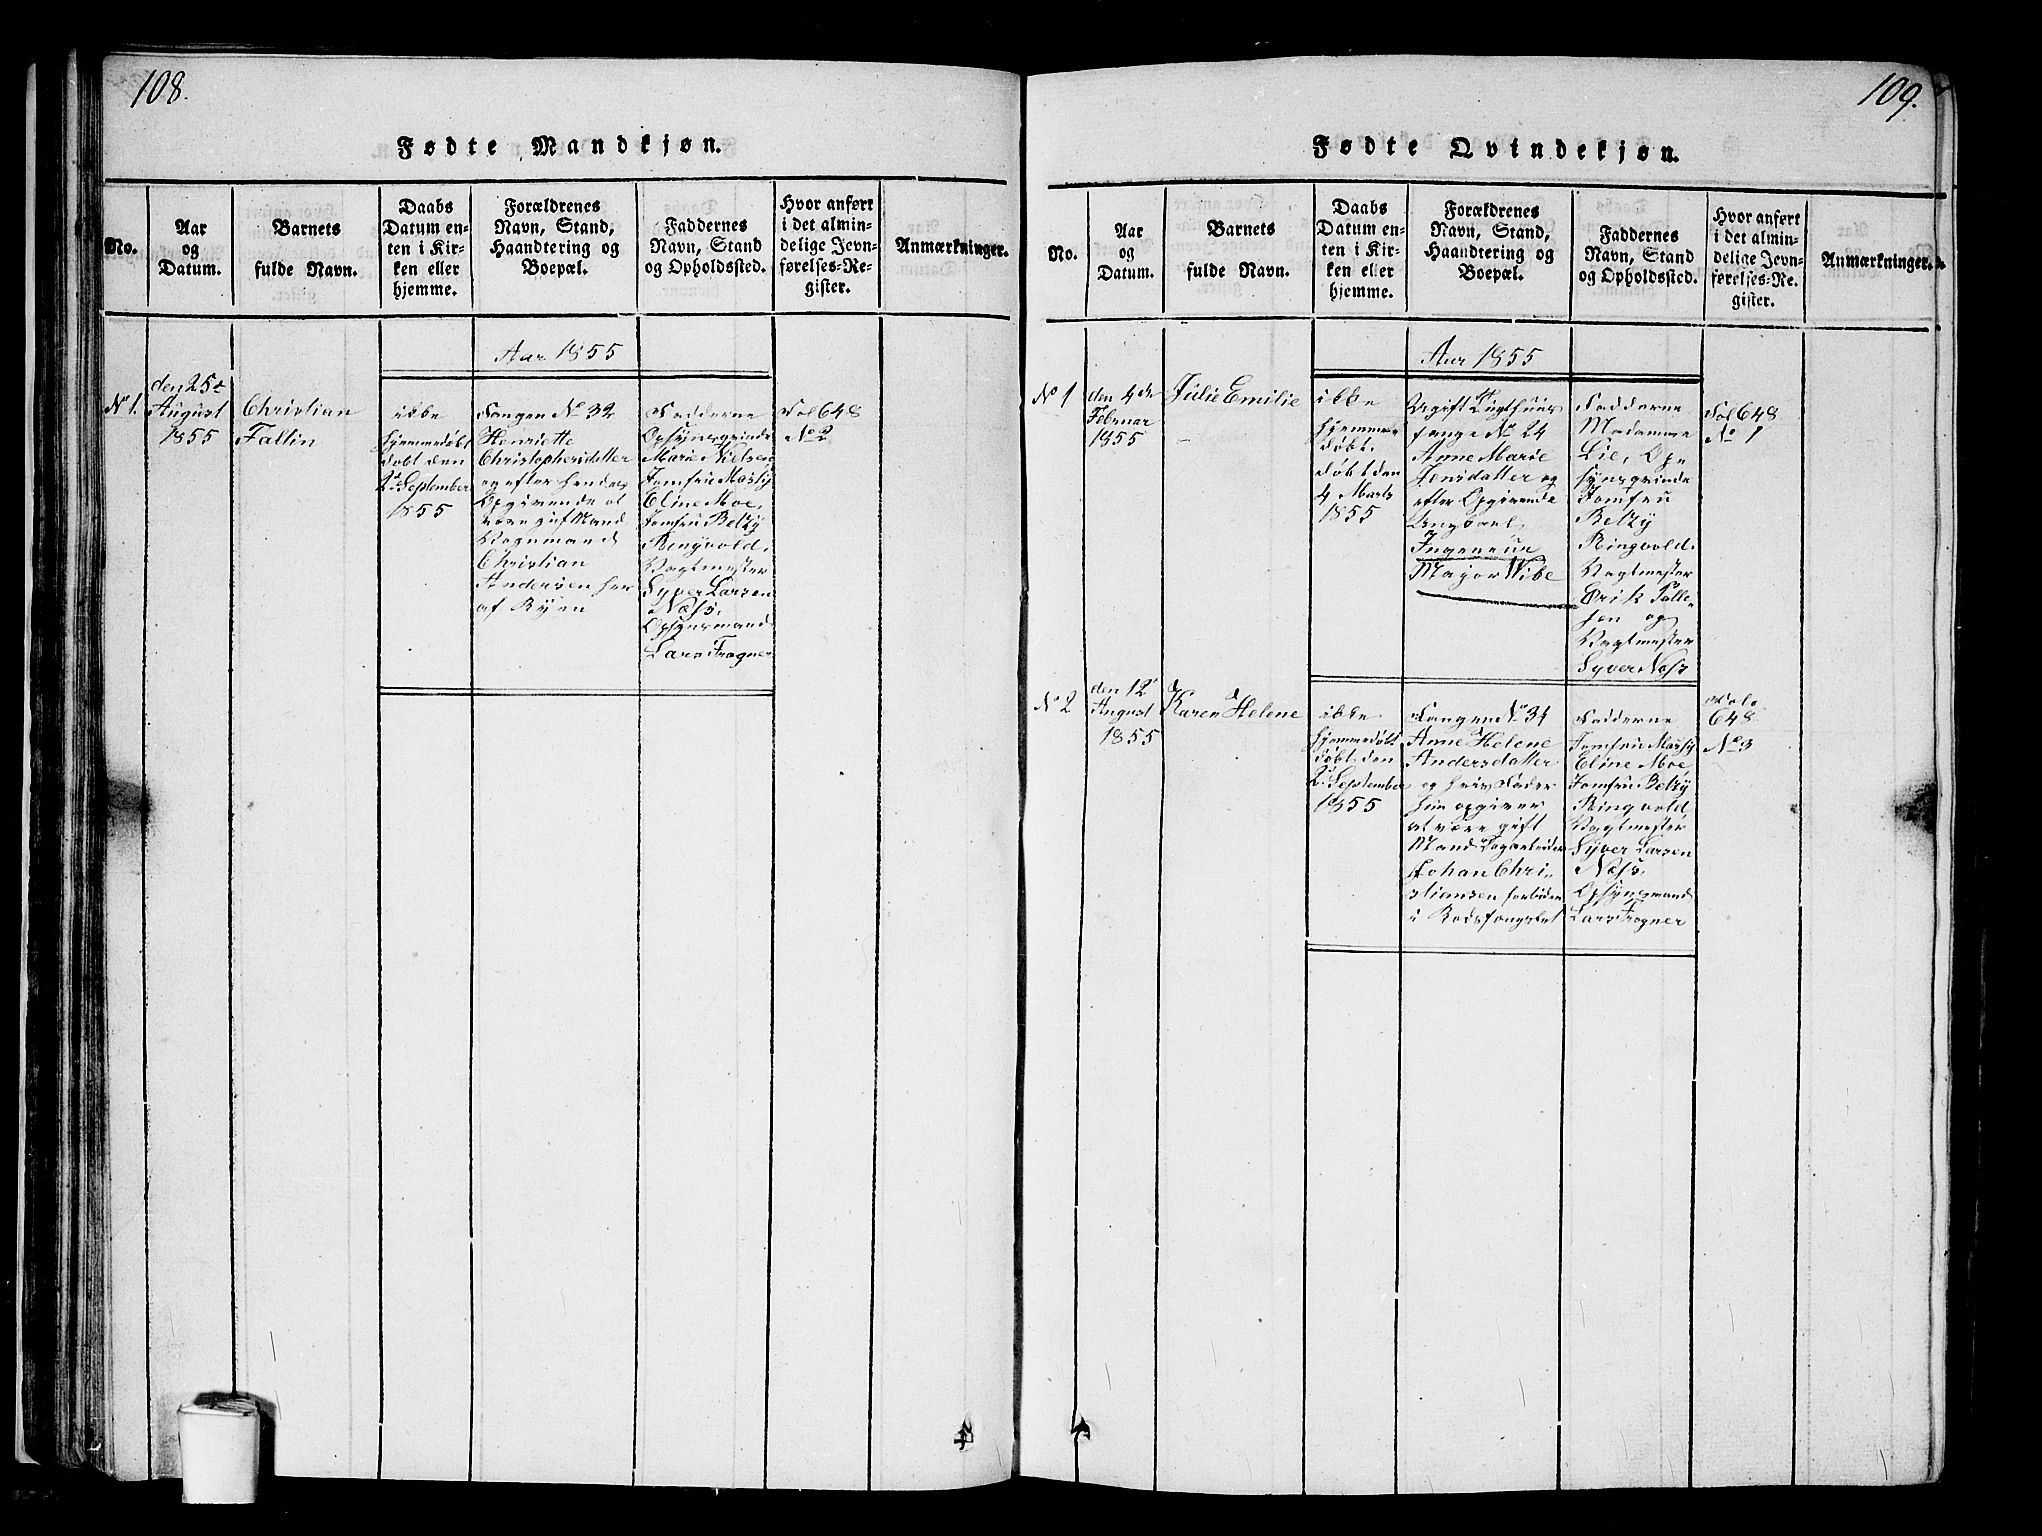 108.
Fødte Mandkjøn.
No.
Aar
og
Datum.
Barnets
fulde Navn.
Daabs
Datum en-
ten i Kir-
ken eller
hjemme.
Forældrenes
Navn, Stand,
Haandtering og
Boepæl.
Faddernes
Navn, Stand
og Opholdssted.
Hvor anført
i det almin-
delige Jevn-
førelses-Re-
gister.
Anmærkninger.
Aar 1855
No 1.
den 25de
August
1855
Christian
Fallin
ikke
hjemmedøbt
døbt den
2den September
1855
Fangen No 32
Henriette
Christophersdatter
og efter hendes
Opgivende at
være gift Mand
Vognmand
Christian
Andersen her
af Byen
Fadderne
Opsynsqvinde
Marie Nielsen
Jomfru Massy
Eline Moe,
Jomfru Betzy
Ringvold,
Vagtmester
Syver Larsen
Næss,
Opsynsmand
Lars Frogner
Fol 648
No 2
109.
Fødte Qvindekjøn.
No.
Aar
og
Datum.
Barnets
fulde Navn.
Daabs
Datum en-
ten i Kir-
ken eller
hjemme.
Forældrenes
Navn, Stand,
Haandtering og
Boepæl.
Faddernes
Navn, Stand
og Opholdssted.
Hvor anført
i det almin-
delige Jevn-
førelses-Re-
gister.
Anmærkninger.
Aar 1855
No 1
den 4de
Februar
1855
Julie Emilie
ikke
hjemme
døbt.
døbt den
4 Marts
1855
Ugift Tugthuus
fange No 24
Anne Marie
Jensdatter og
efter Opgivende
Ungkarl
Ingeneur
Major Vibe
Fadderne
Madamme
Lie, Op-
synsqvinde
Jomfru
Betzy
Ringvold.
Vagtmester
Erik Palle-
sen og
Vagtmester
Syver Næss
Fol 648
No 1
No 2
den 12te
August
1855
Karen Helene
ikke
hjemmedøbt
døbt den
2den September
1855
Fangen No 31
Anne Helene
Andersdatter
og hvis Fader
hun opgiver
at være gift
Mand Dagarbeider
Johan Chri-
stiansen forbuden
i Bodsfængslet
Fadderne
Jomfru Massy
Eline Moe
Jomfru Betzy
Ringvold
Vagtmester
Syver Larsen
Næss.
Opsynsmand
Lars Frogner
Folo
648
No 3